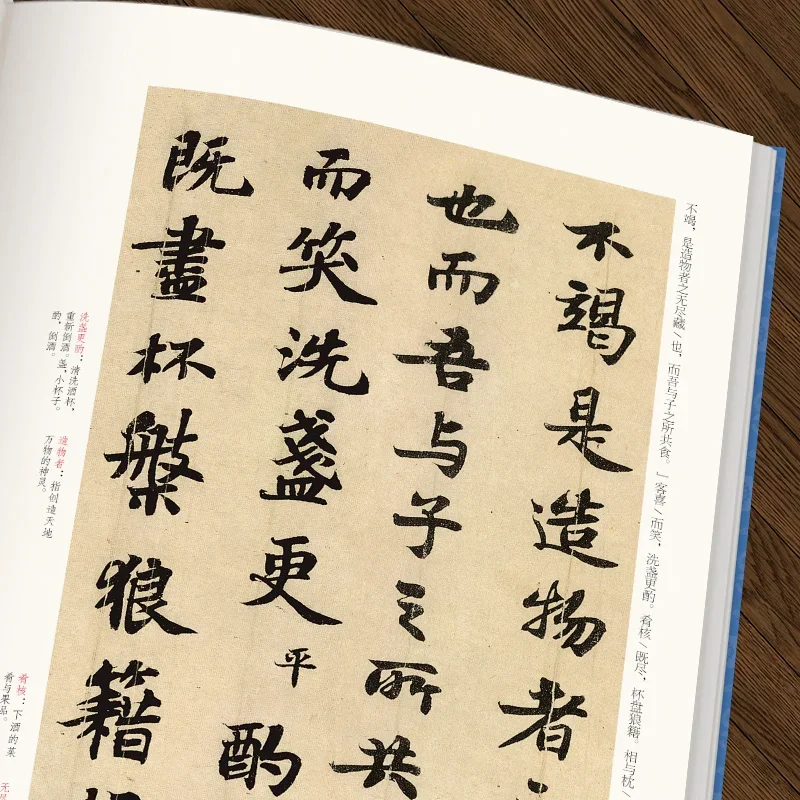 不竭，是造物者之无尽藏/也，而吾与子之所共食。」客喜/而笑，洗盏更酌。肴核/既尽，杯盘狼籍。相与枕/
不竭是造物者
也而吾与子之所共
而笑洗盏更平酌
既盡杯槃狼籍
洗盏更酌：清洗酒杯，
重新倒酒。盏，小杯子。
酌，倒酒。
造物者：指创造天地
万物的神灵。
肴核：下酒的菜
肴与果品。